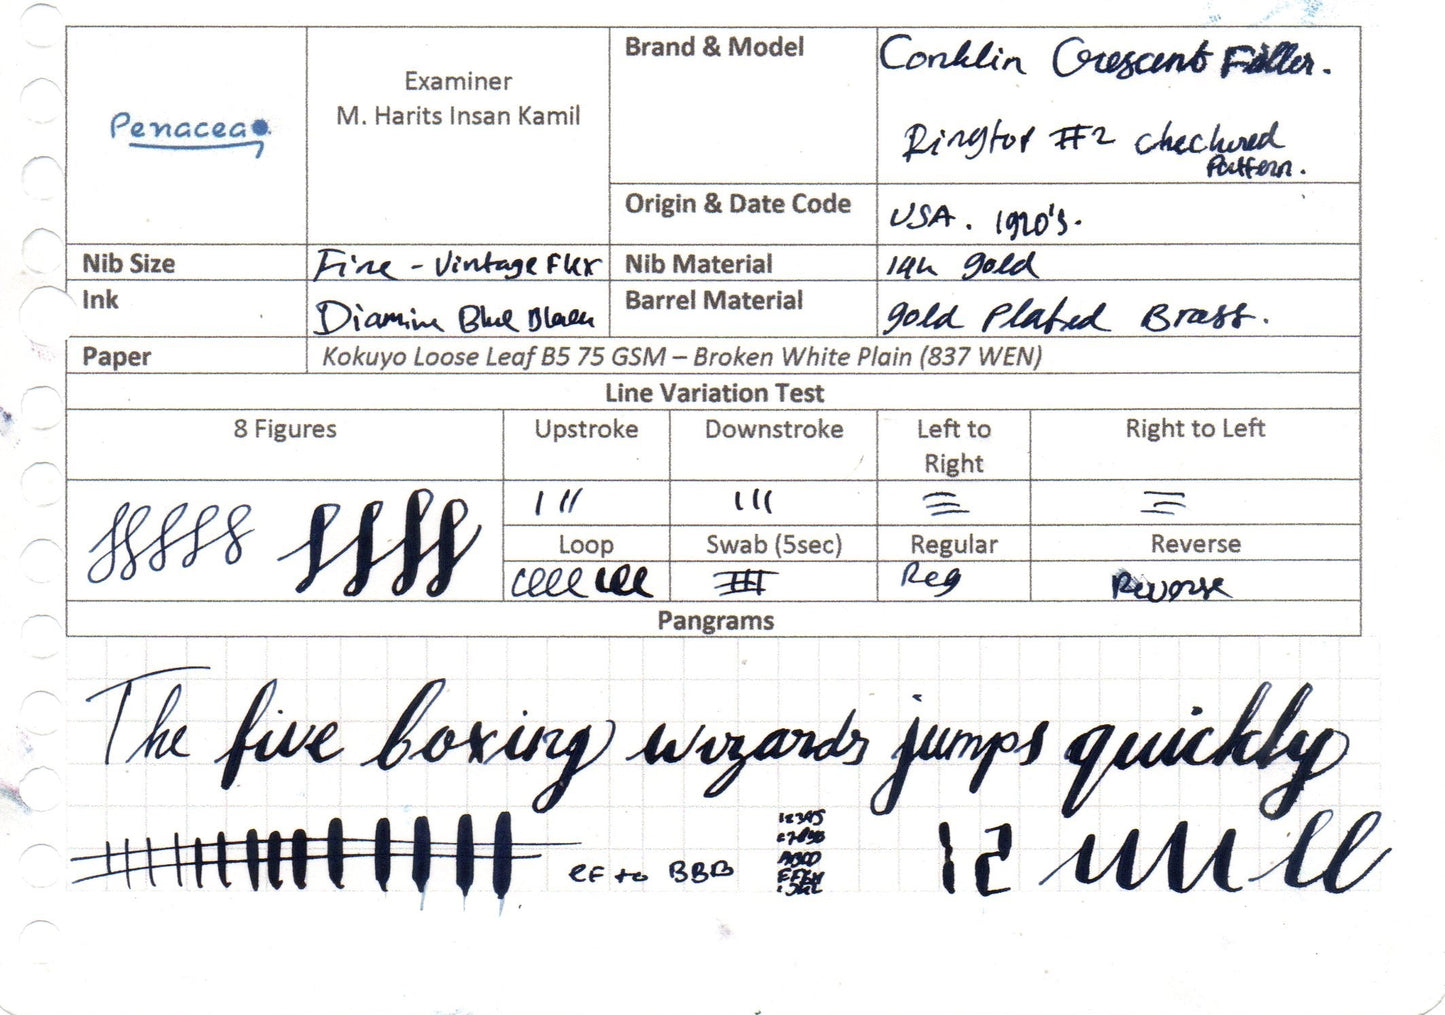 Penacea
Examiner
M. Harits Insan Kamil
Brand & Model
Conklin Crescent Filler.
Ringtop #2 checkered
Pattern.
Origin & Date Code
USA. 1920's.
Nib Size
Fine - Vintage Flex
Nib Material
14k gold
Ink
Diamine Blue Black
Barrel Material
gold Plated Brass.
Paper
Kokuyo Loose Leaf B5 75 GSM – Broken White Plain (837 WEN)
Line Variation Test
8 Figures
Upstroke
Downstroke
Left to
Right
Right to Left
Loop
Swab (5sec)
Regular
Reverse
Reg
Reverse
Pangrams
The five boxing wizards jumps quickly
EF to BBB
12345
67890
ABCD
12